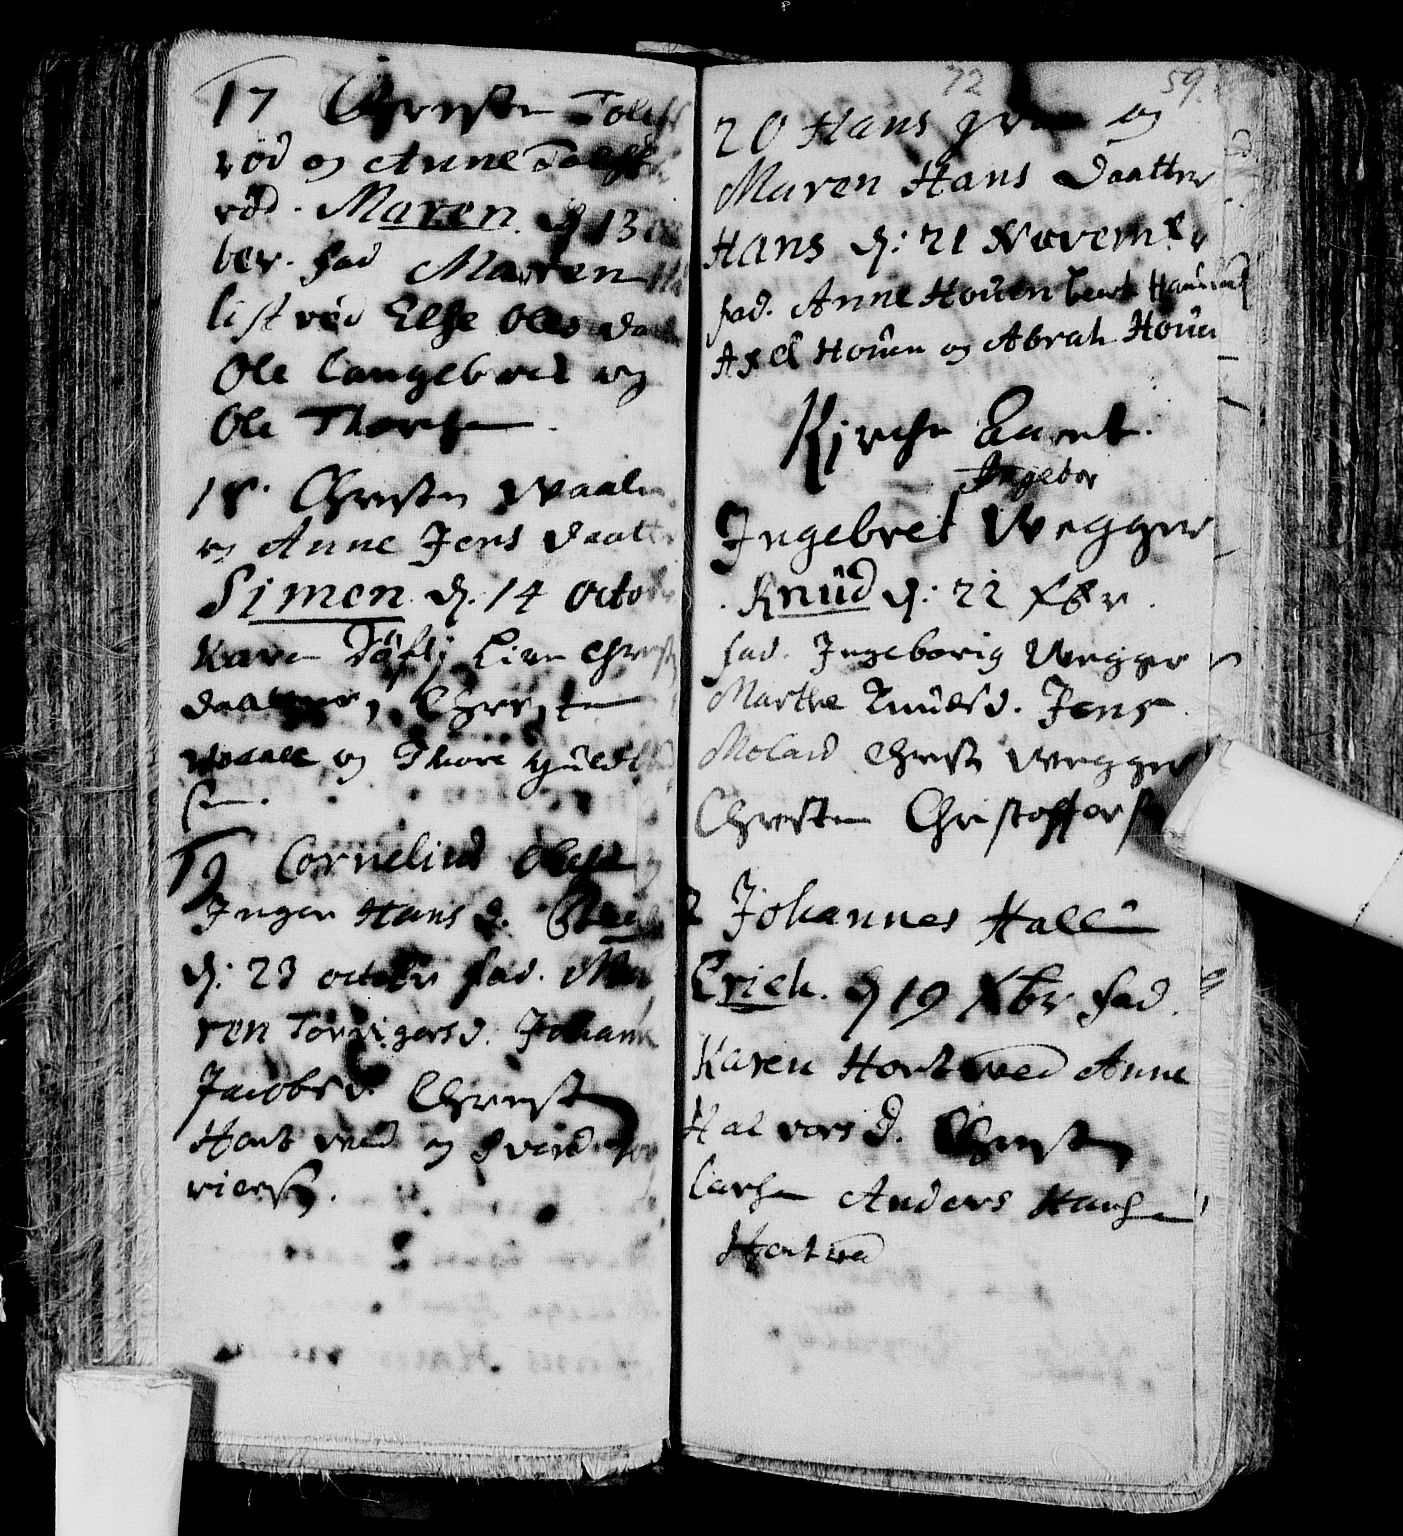 17 Christen Tolefs
rød og Anne Tolefs
rød. Maren d 13
ber. fad Maren
listrød Else Oles daat
Ole Langebret og
Ole Thorsen
18. Christen Waale
og Anne Jens daatter
Simen d. 14 Octob
Karen Tøftj Live Christ
daatter, Christen
Waale og Thore Guld
sen.
19 Cornelius Olesen
Inger Hans d.
d: 23 octobr fad. Ma
ren Torrigersd. Johann
Jacobsd. Christen
Hortved og
riersen.
72 59.
20 Hans og
Maren Hans Daatter
Hans d: 21 Novembr
fad. Anne Houen
Axel Houen og Abrah Houen
Kirche Aaret.
Ingebor
Ingebret Wegger
Knüd d: 22 Xbr.
fad. Ingeborig Wegger
Marthe Knüdsd. Jens
Meland Christen Wegger
Christen Christoffers
2 Johannes Hallen
Erich. d 19 Xbr fad.
Karen Hortved Anne
Halvorsd. Christen
Larsen Anders Hansen
Hortved